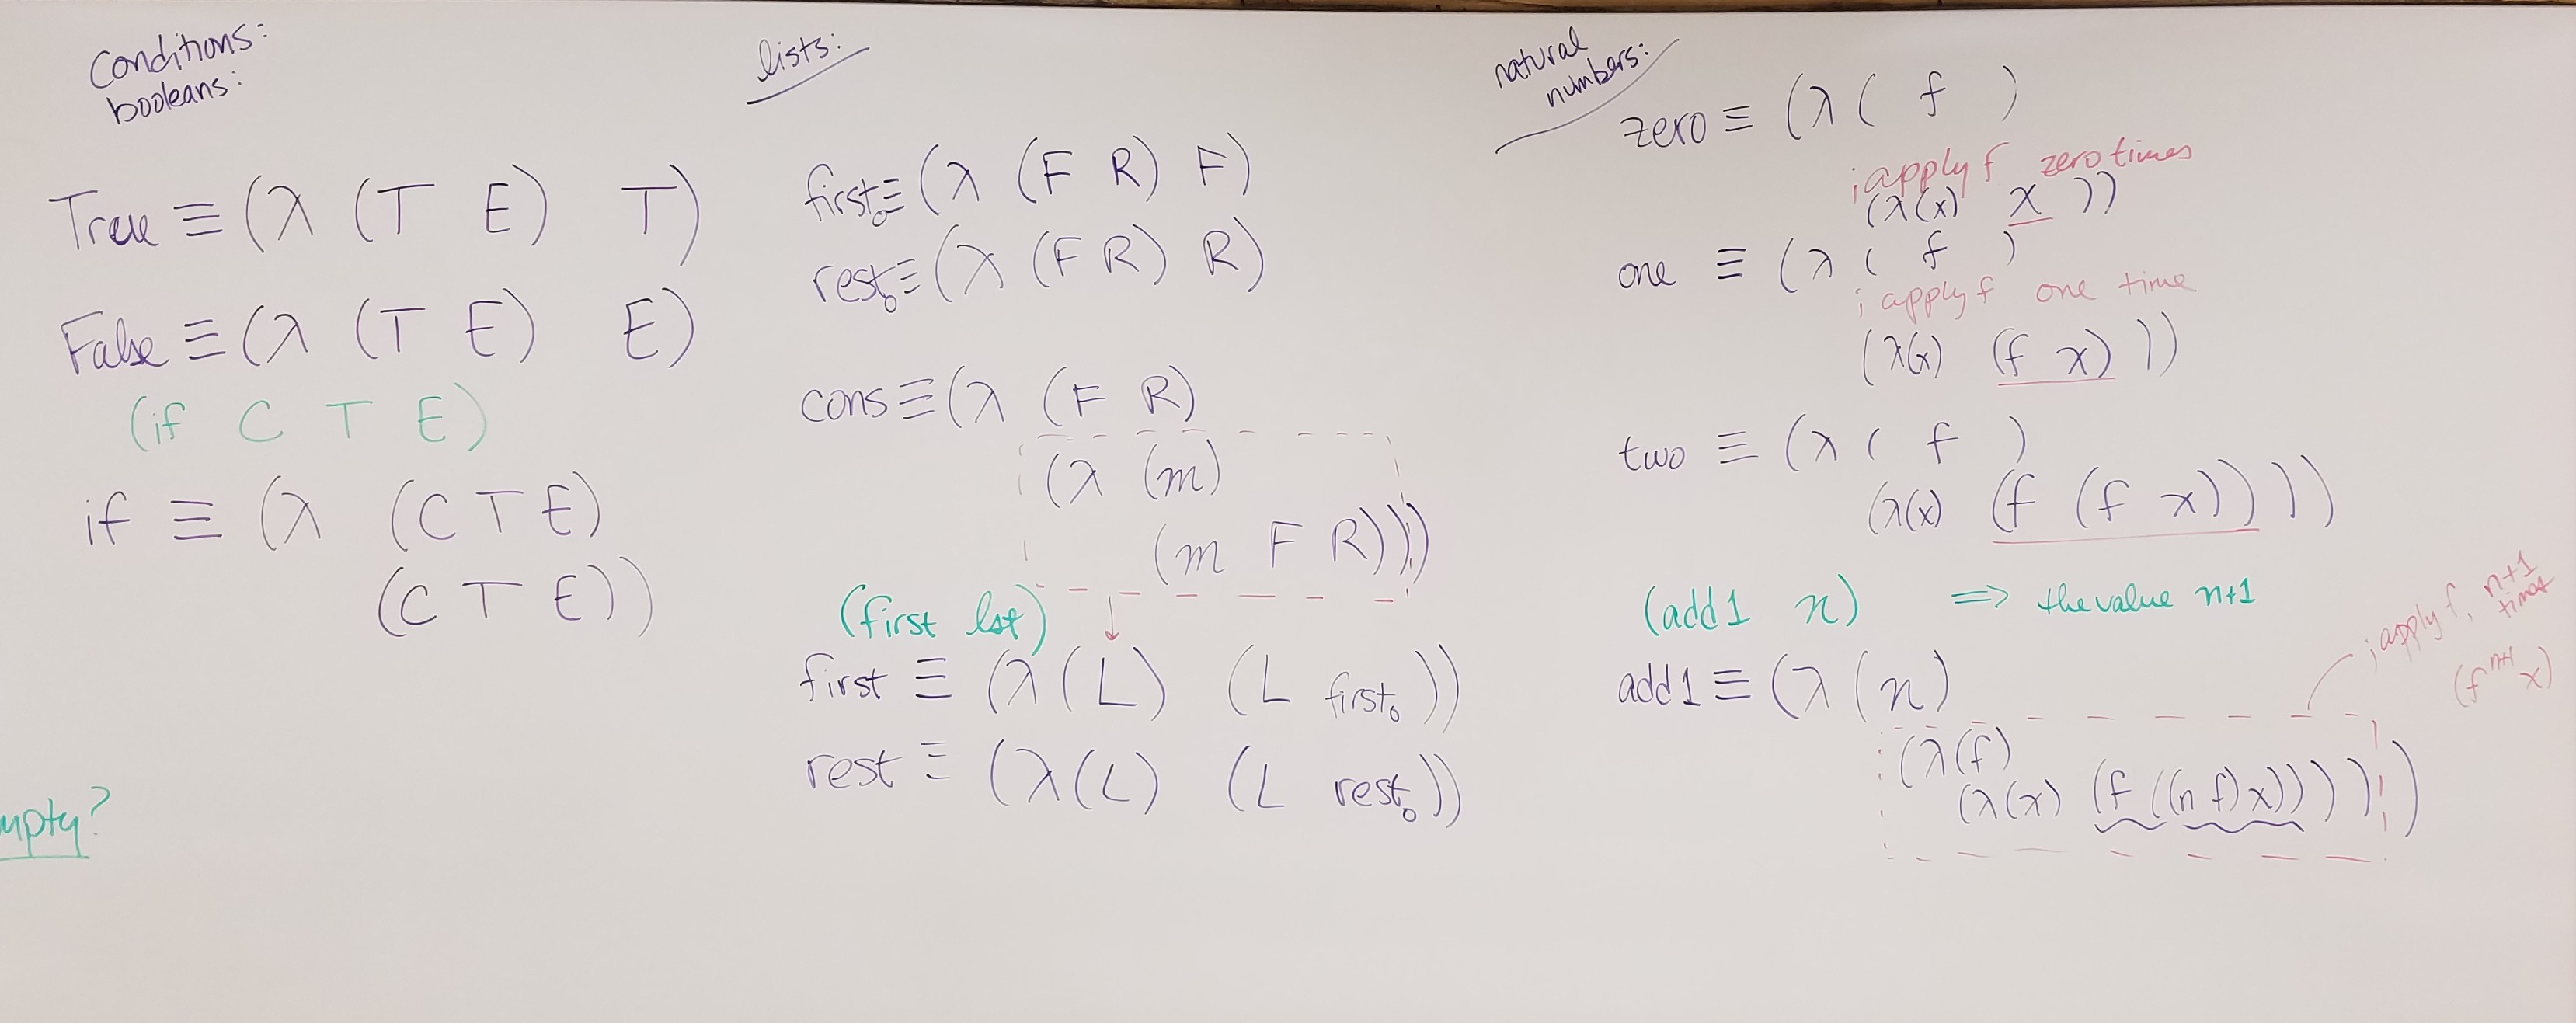 Conditions:
booleans:
True ≡ (λ (T E) T)
False ≡ (λ (T E) E)
(if C T E)
if ≡ (λ (C T E)
(C T E))
mpty?
lists:
first₀ ≡ (λ (F R) F)
rest₀ ≡ (λ (F R) R)
cons ≡ (λ (F R)
(λ (m)
(m F R)))
(first lst)
first ≡ (λ (L) (L first₀))
rest ≡ (λ (L) (L rest₀))
natural
numbers:
zero ≡ (λ ( f )
; apply f zero times
(λ(x) x ))
one ≡ (λ ( f )
; apply f one time
(λ(x) (f x) ))
two ≡ (λ ( f )
(λ(x) (f (f x)) ))
(add1 n) => the value n+1
add1 ≡ (λ (n)
; apply f, n+1
times
(fⁿ⁺¹ x)
(λ(f)
(λ(x) (f ((n f) x)))))